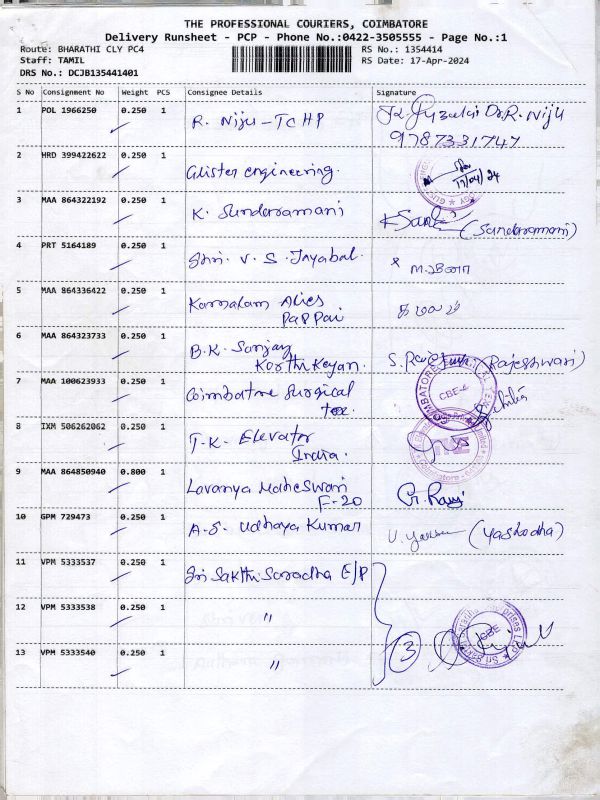 THE PROFESSIONAL COURIERS, COIMBATORE
Delivery Runsheet - PCP - Phone No.:0422-3505555 - Page No.:1
Route: BHARATHI CLY PC4
RS No.: 1354414
Staff: TAMIL
RS Date: 17-Apr-2024
DRS No.: DCJB135441401
S No Consignment No Weight PCS Consignee Details Signature
1 POL 1966250 0.250 1 R. Niju - TCHP Dr. R. Niju
9787331747
2 HRD 399422622 0.250 1 Glister engineering. 17/04/24
3 MAA 864322192 0.250 1 K. Sunderamani (Sanderamani)
4 PRT 5164189 0.250 1 Shri. V. S. Jayabal.
5 MAA 864336422 0.250 1 Kamalam Alies கமலம்
Pappai
6 MAA 864323733 0.250 1 B.K. Sanjay (Rajeshwari)
Karthikeyan.
7 MAA 100623933 0.250 1 Coimbatore Surgical CBE-4
8 IXM 506262062 0.250 1 T-K. Elevator
India.
9 MAA 864850940 0.800 1 Lavanya Maheswari
F-20
10 GPM 729473 0.250 1 A.S. Udhaya Kumar (Yashodha)
11 VPM 5333537 0.250 1 Sri Sakthi Saradha E/P
12 VPM 5333538 0.250 1 〃
13 VPM 5333540 0.250 1 〃 3 CBE